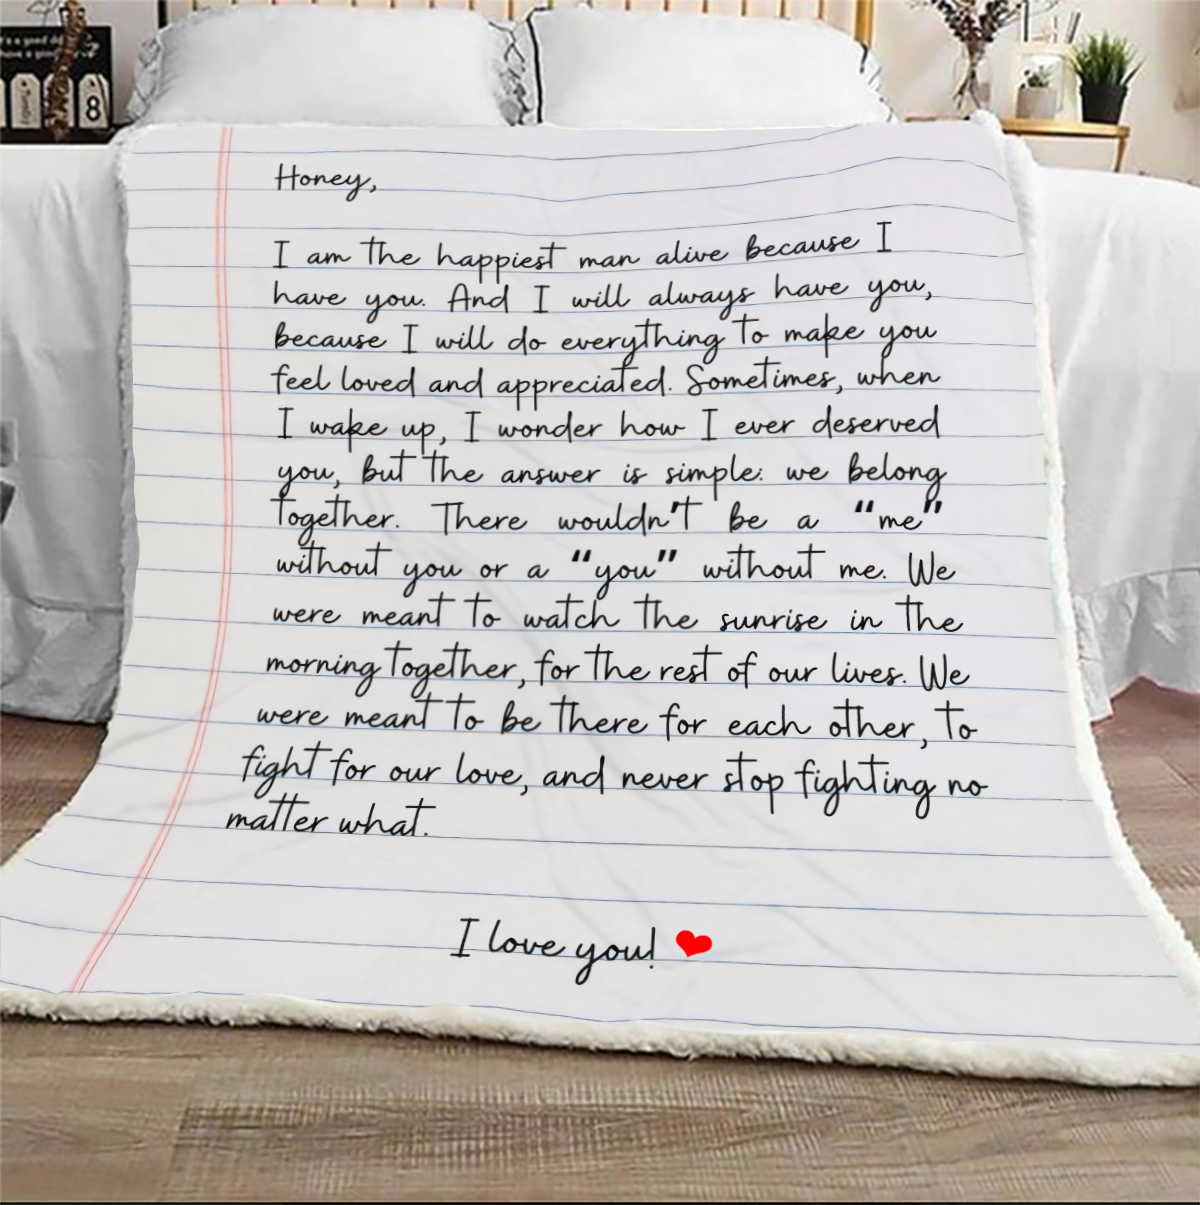 it's a good da
have a good
8
Honey,
I am the happiest man alive because I
have you. And I will always have you,
because I will do everything to make you
feel loved and appreciated. Sometimes, when
I wake up, I wonder how I ever deserved
you, but the answer is simple: we belong
together. There wouldn't be a “me”
without you or a “you” without me. We
were meant to watch the sunrise in the
morning together, for the rest of our lives. We
were meant to be there for each other, to
fight for our love, and never stop fighting no
matter what.
I love you!